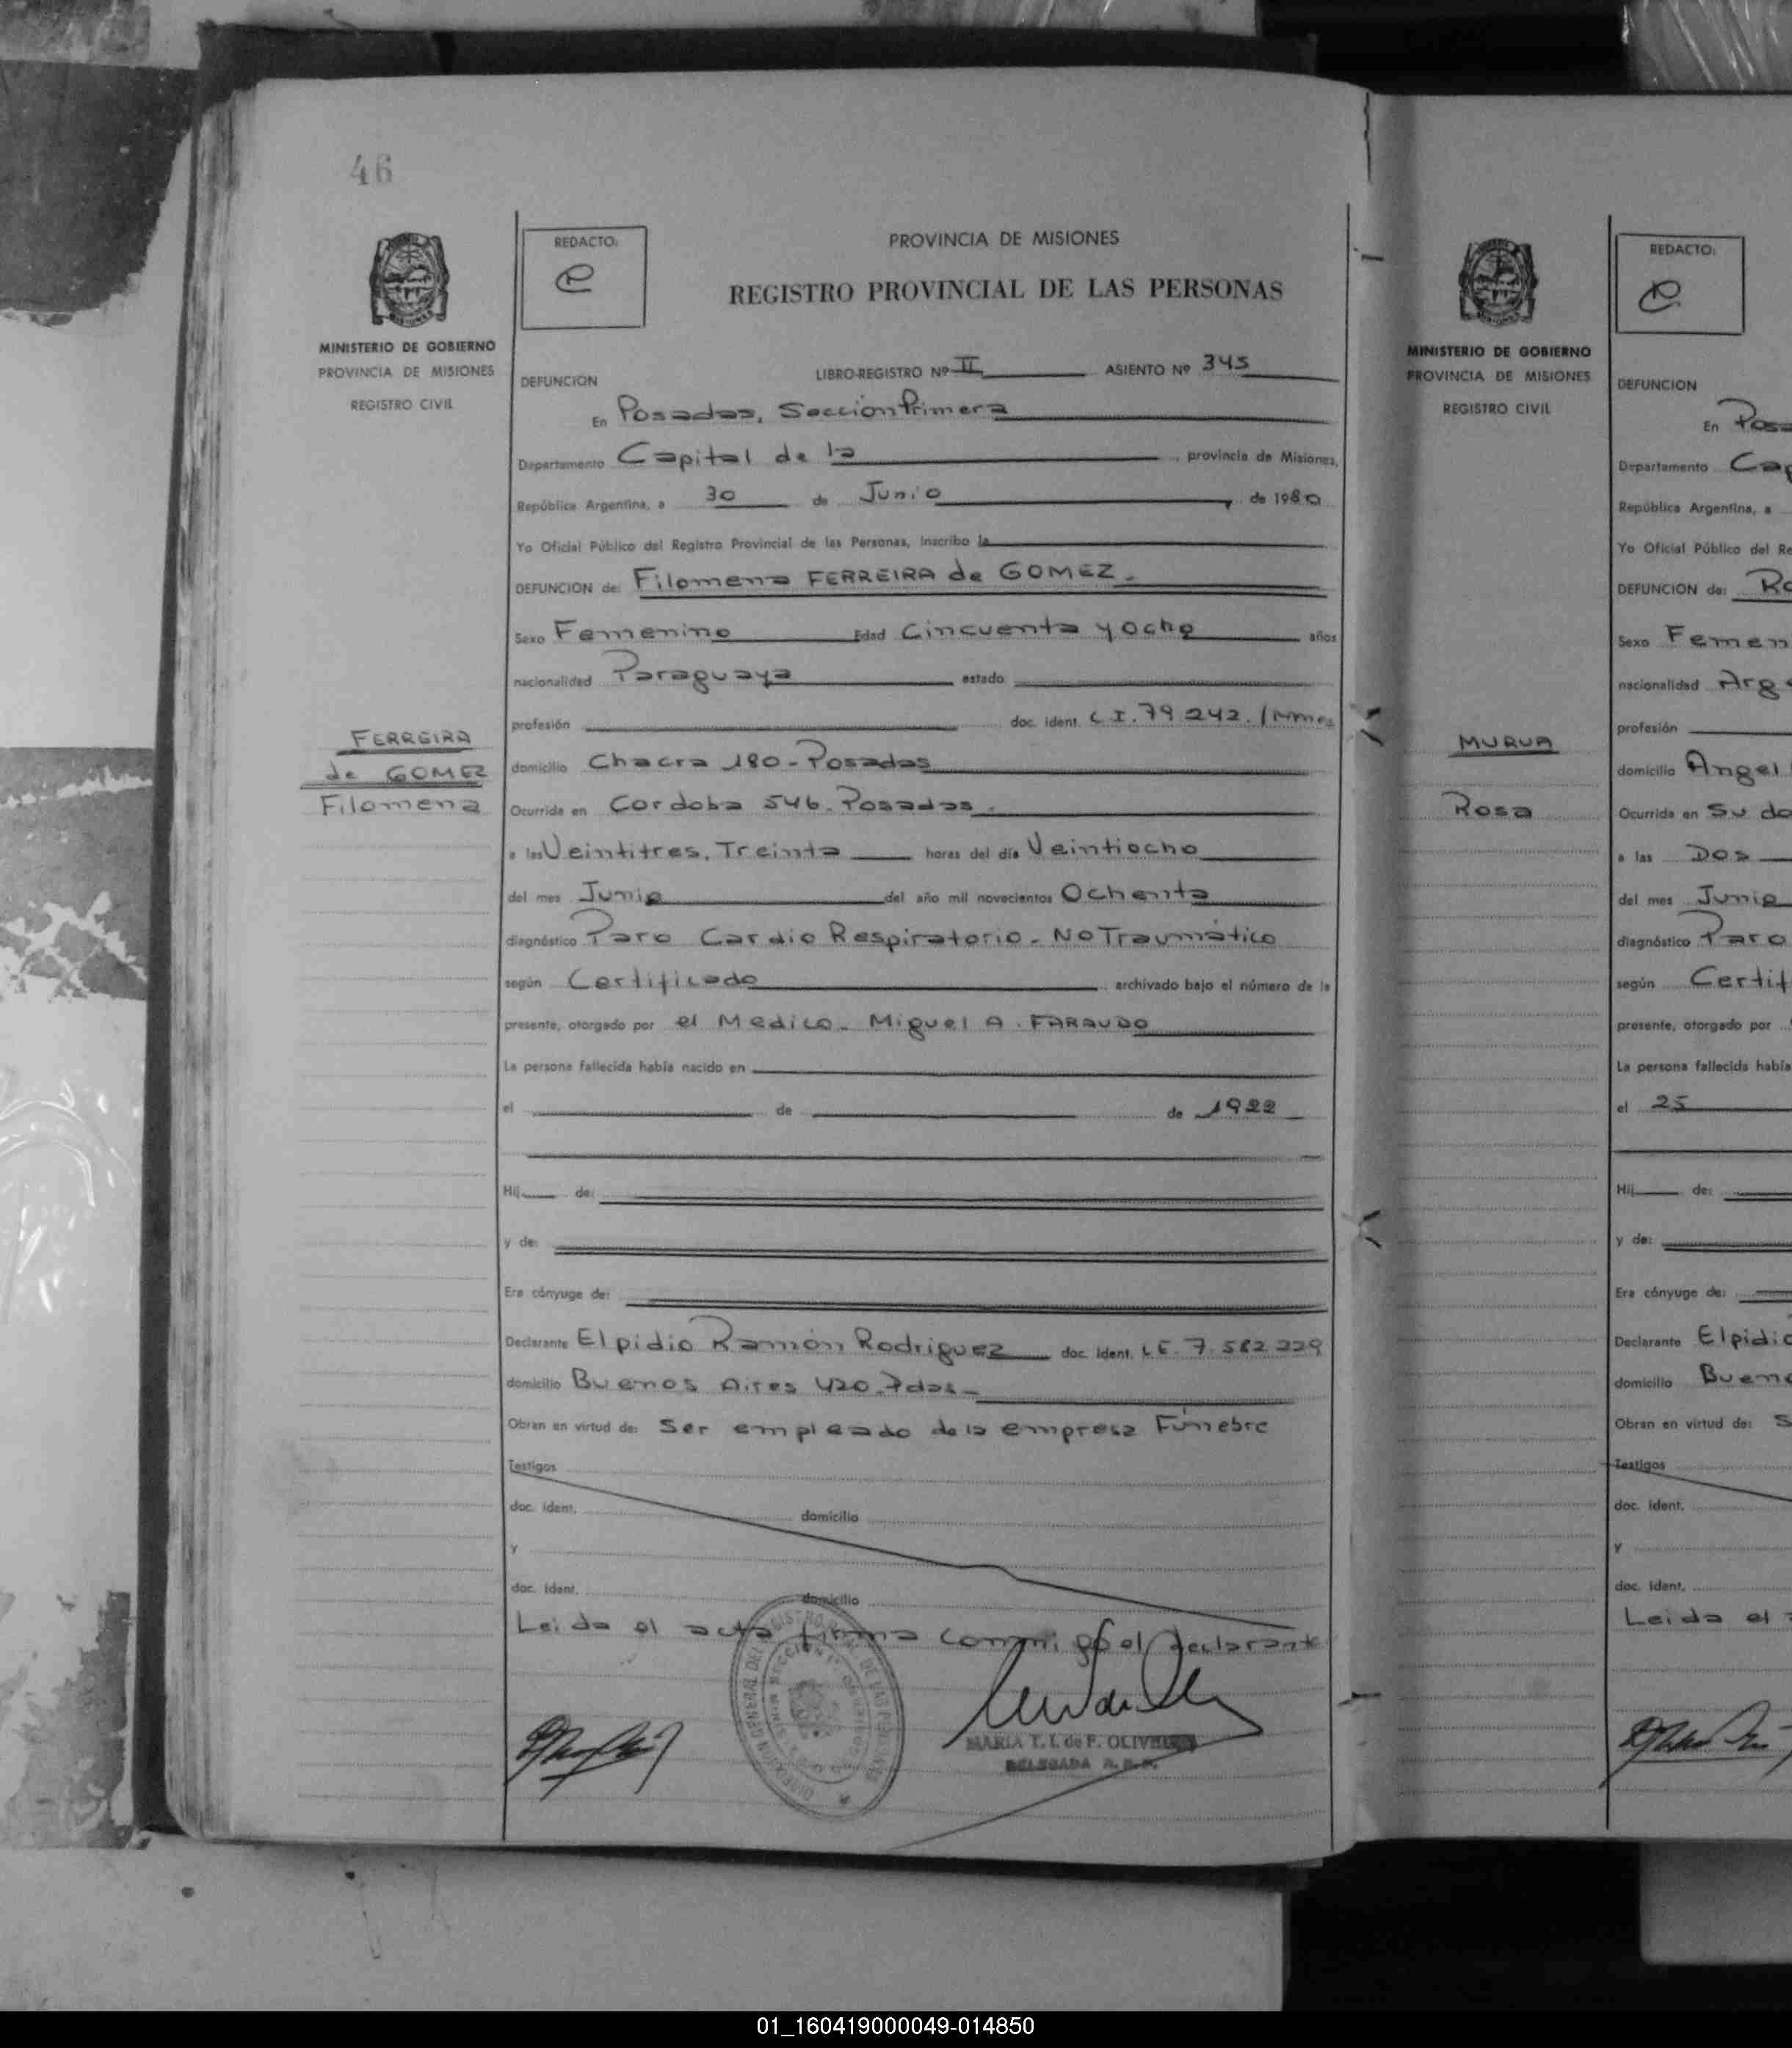 46
MINISTERIO DE GOBIERNO
PROVINCIA DE MISIONES
REGISTRO CIVIL
FERREIRA
de GOMEZ
Filomena
REDACTO:
PROVINCIA DE MISIONES
REGISTRO PROVINCIAL DE LAS PERSONAS
DEFUNCION LIBRO-REGISTRO Nº II ASIENTO Nº 345
En Posadas, Sección Primera
Departamento Capital de la , provincia de Misiones,
República Argentina, a 30 de Junio , de 1980
Yo Oficial Público del Registro Provincial de las Personas, inscribo la
DEFUNCION de: Filomena FERREIRA de GOMEZ.
Sexo Femenino Edad Cincuenta y ocho años
nacionalidad Paraguaya estado
profesión doc. ident. C.I. 79.242. / Mnes
domicilio Chacra 180 - Posadas
Ocurrida en Cordoba 546. Posadas.
a las Veintitres, Treinta horas del día Veintiocho
del mes Junio del año mil novecientos Ochenta
diagnóstico Paro Cardio Respiratorio - No Traumático
según Certificado archivado bajo el número de la
presente, otorgado por el Medico - Miguel A. FARAUDO
La persona fallecida había nacido en
el de de 1922
Hij de:
y de:
Era cónyuge de:
Declarante Elpidio Ramón Rodriguez doc. ident. L.E. 7.582.229
domicilio Buenos Aires 420. Pdas -
Obran en virtud de: Ser empleado de la empresa Fúnebre
Testigos
doc. ident. domicilio
y
doc. ident. domicilio
Leida el acta firma conmigo el declarante
MARIA T. I. de F. OLIVEIRA
DELEGADA R.P.P.
MINISTERIO DE GOBIERNO
PROVINCIA DE MISIONES
REGISTRO CIVIL
MURUA
Rosa
REDACTO:
DEFUNCION
En Posa
Departamento Cap
República Argentina, a
Yo Oficial Público del Re
DEFUNCION de: Ro
Sexo Femen
nacionalidad Arg
profesión
domicilio Angel
Ocurrida en Su do
a las Dos
del mes Junio
diagnóstico Paro
según Certif
presente, otorgado por
La persona fallecida había
el 25
Hij de:
y de:
Era cónyuge de:
Declarante Elpidio
domicilio Bueno
Obran en virtud de: S
Testigos
doc. ident.
y
doc. ident.
Leida el a
01_160419000049-014850